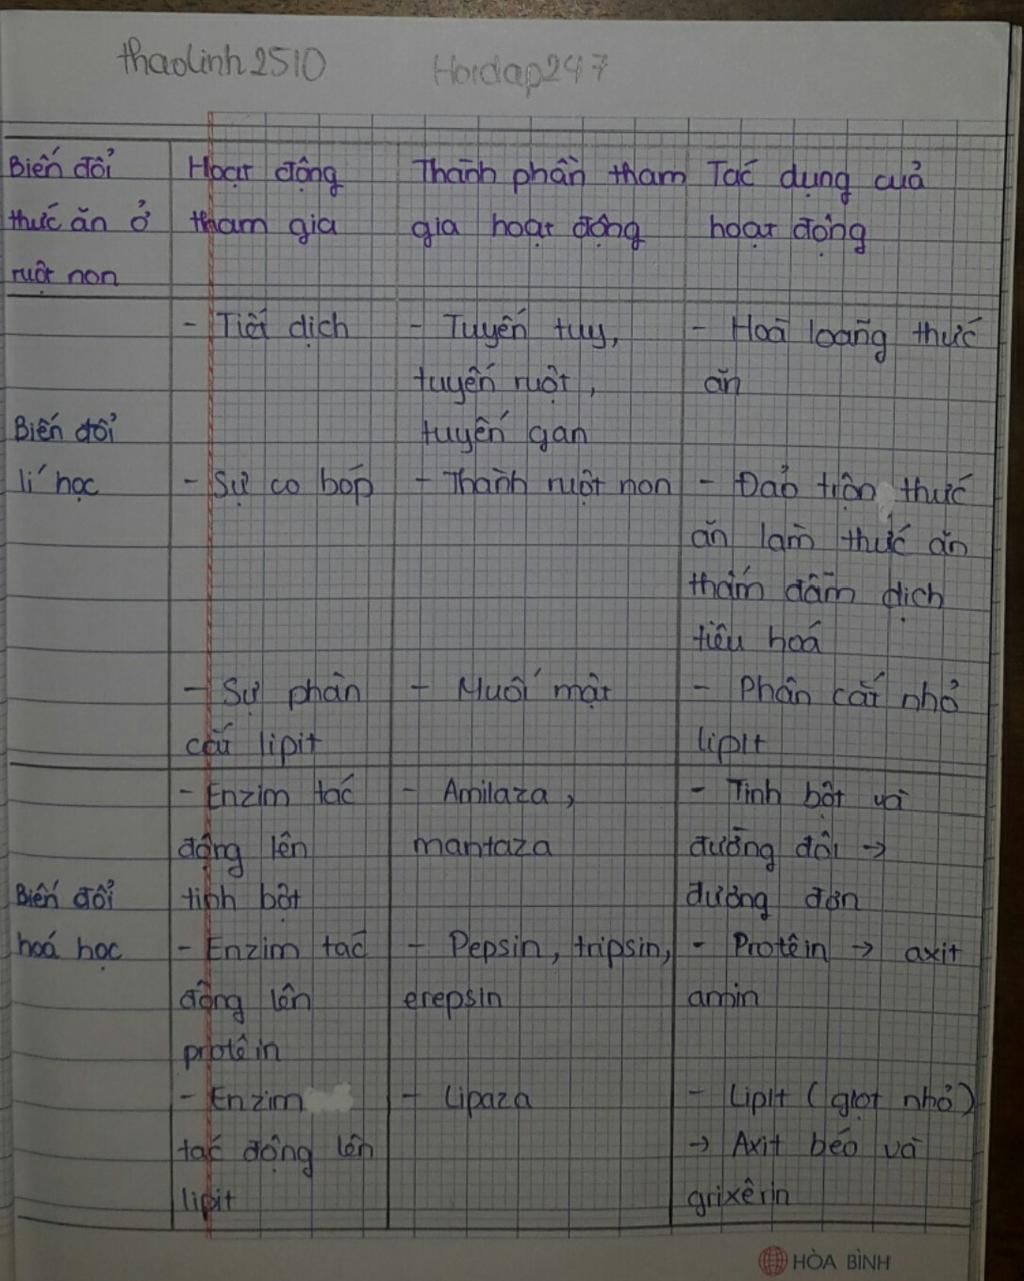 thaolinh2510 Hoidap247
Biến đổi Hoạt động Thành phần tham Tác dụng của
thức ăn ở tham gia gia hoạt động hoạt động
ruột non
- Tiết dịch - Tuyến tuy, - Hoà loãng thức
tuyến ruột, ăn
Biến đổi tuyến gan
lí học - Sự co bóp - Thành ruột non - Đảo trộn thức
ăn làm thức ăn
thấm đẫm dịch
tiêu hoá
- Sự phân - Muối mật - Phân cắt nhỏ
cắt lipit lipit
- Enzim tác - Amilaza, - Tinh bột và
động lên mantaza đường đôi →
Biến đổi tinh bột đường đơn
hoá học - Enzim tác - Pepsin, tripsin, - Protêin → axit
động lên erepsin amin
protêin
- Enzim - Lipaza - Lipit (giọt nhỏ)
tác động lên → Axit béo và
lipit grixêrin
HÒA BÌNH